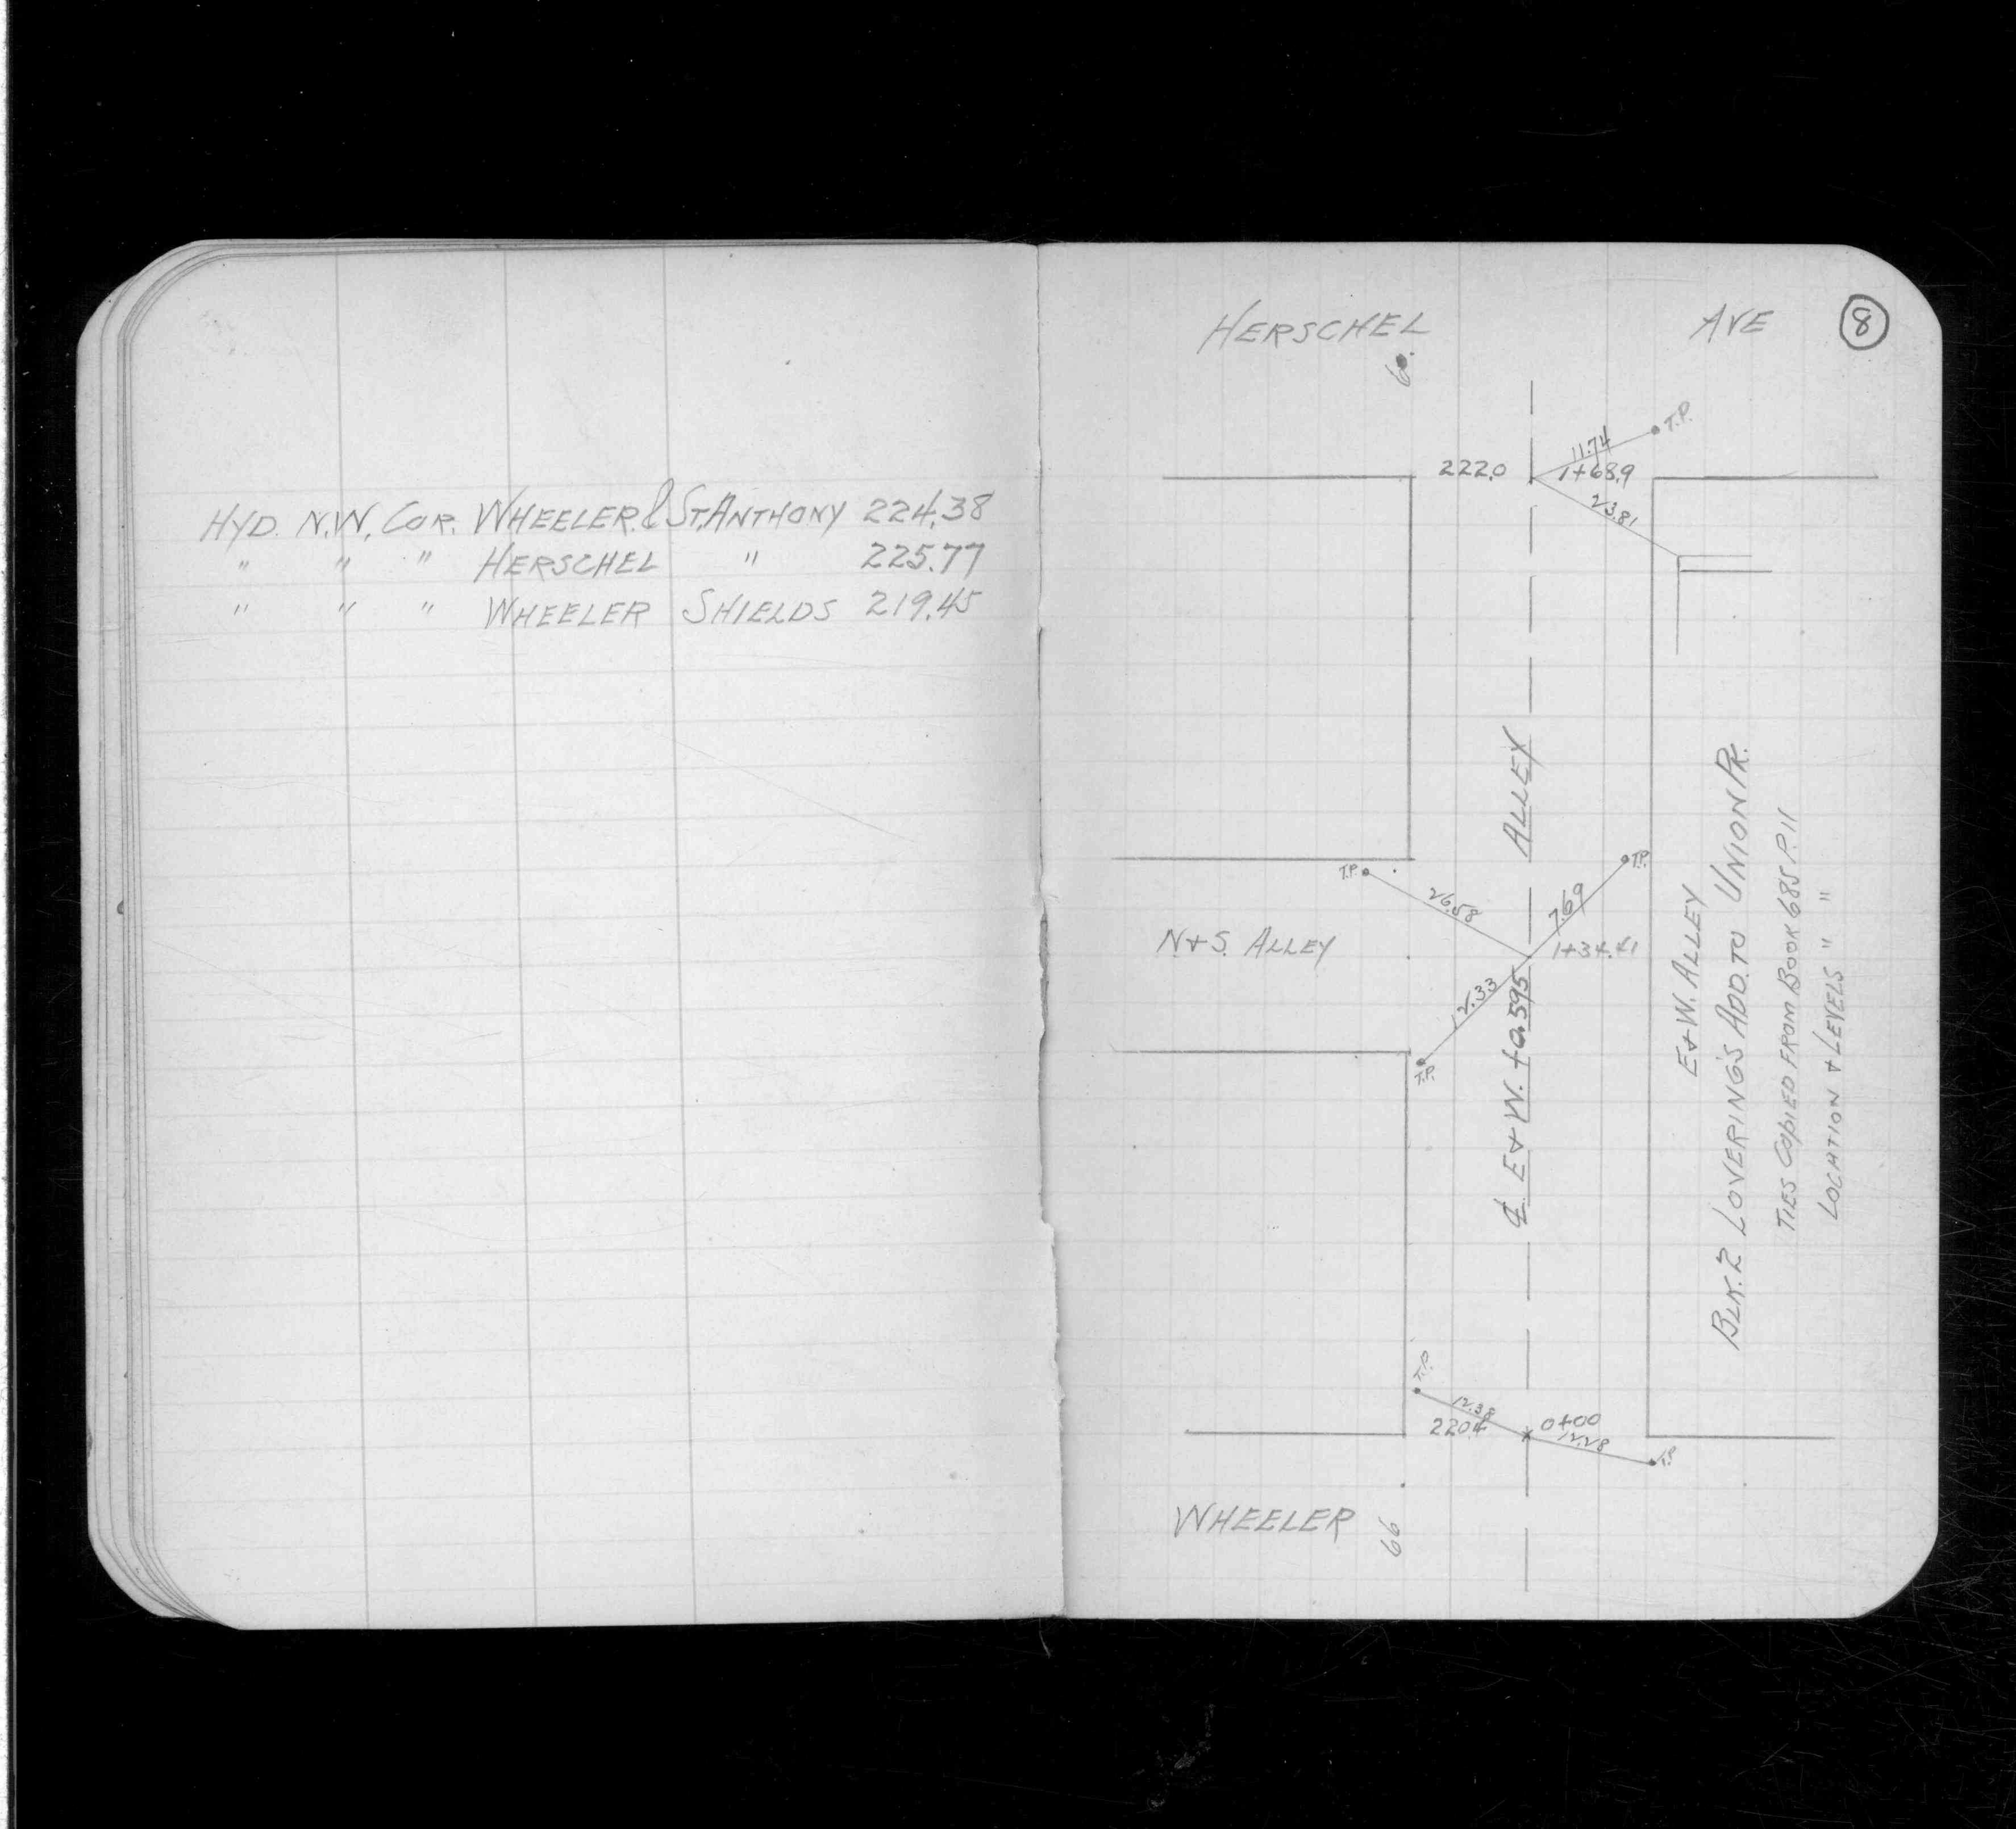 HYD. N.W. COR. WHEELER & ST. ANTHONY 224.38
" " " HERSCHEL " 225.77
" " " WHEELER SHIELDS 219.45
HERSCHEL AVE
8
T.P.
11.74
222.0 1+68.9
23.81
ALLEY
T.P. T.P.
26.58 7.69
N+S. ALLEY 1+34.41
12.33
T.P.
℄ E+W. +0.595
E+W. ALLEY
BLK. 2 LOVERING'S ADD. TO UNION PK.
TIES COPIED FROM BOOK 685 P. 11
LOCATION + LEVELS " "
T.P.
12.38
220.4 0+00
12.28
T.P.
WHEELER 66